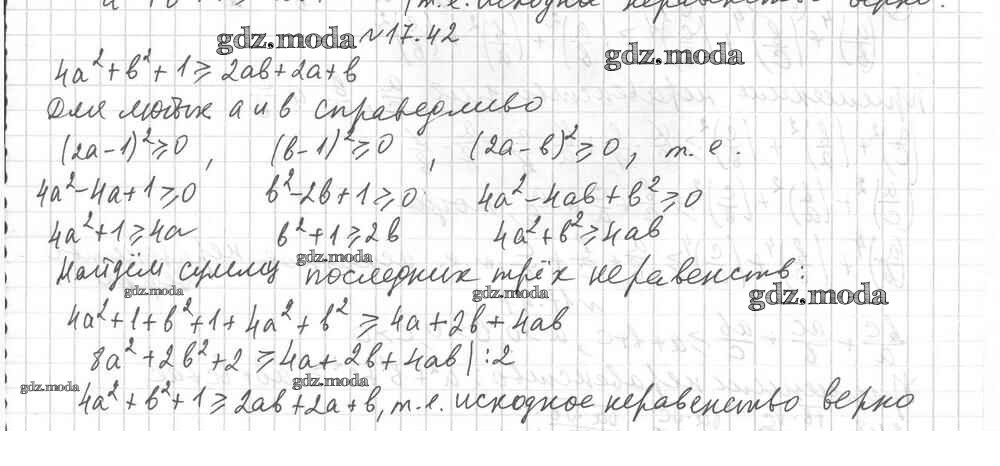 т.е. исходное неравенство верно.
gdz.moda №17.42
gdz.moda
4a²+b²+1≥2ab+2a+b
Для любых a и b справедливо
(2a-1)²≥0, (b-1)²≥0, (2a-b)²≥0, т.е.
4a²-4a+1≥0 b²-2b+1≥0 4a²-4ab+b²≥0
4a²+1≥4a b²+1≥2b 4a²+b²≥4ab
gdz.moda
Найдём сумму последних трёх неравенств:
gdz.moda gdz.moda gdz.moda
4a²+1+b²+1+4a²+b²≥4a+2b+4ab
8a²+2b²+2≥4a+2b+4ab|:2
gdz.moda gdz.moda
4a²+b²+1≥2ab+2a+b, т.е. исходное неравенство верно